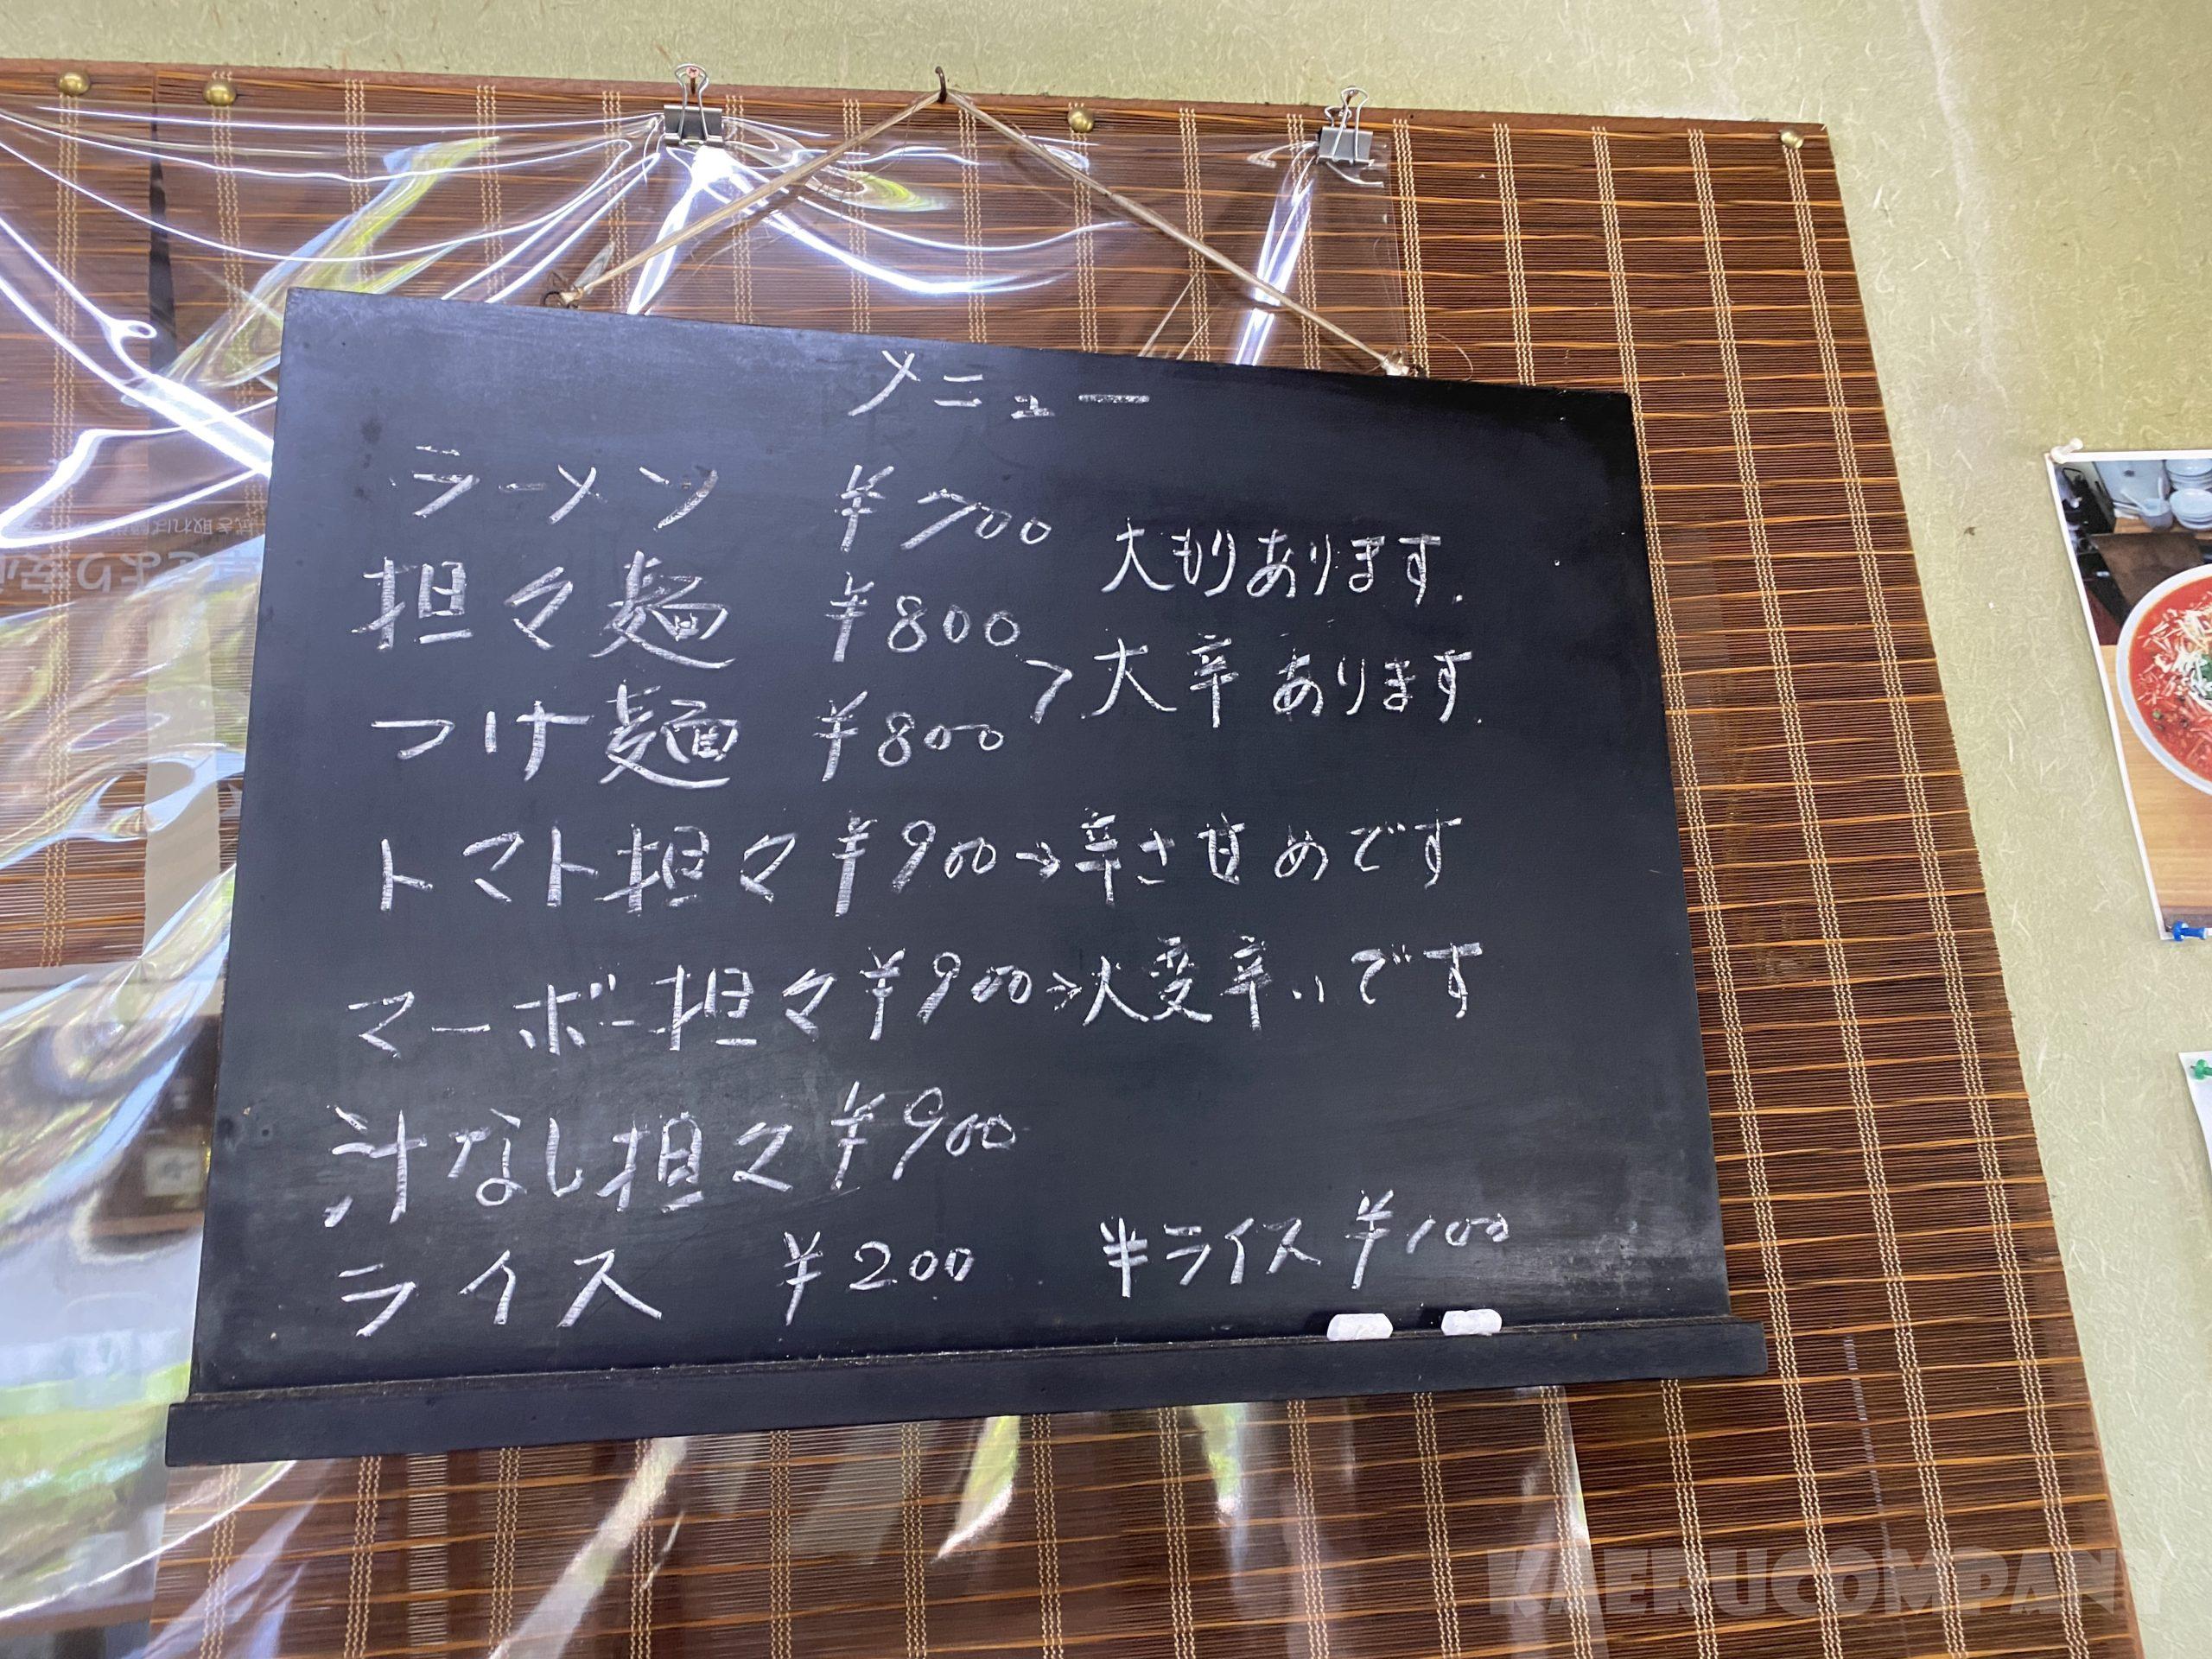 メニュー
ラーメン ¥700
大もりあります.
担々麺 ¥800
つけ麺 ¥800
>大辛あります.
トマト担々¥900→辛さ甘めです
マーボー担々¥900→大変辛いです
汁なし担々¥900
ライス ¥200 半ライス¥100
KAERUCOMPANY